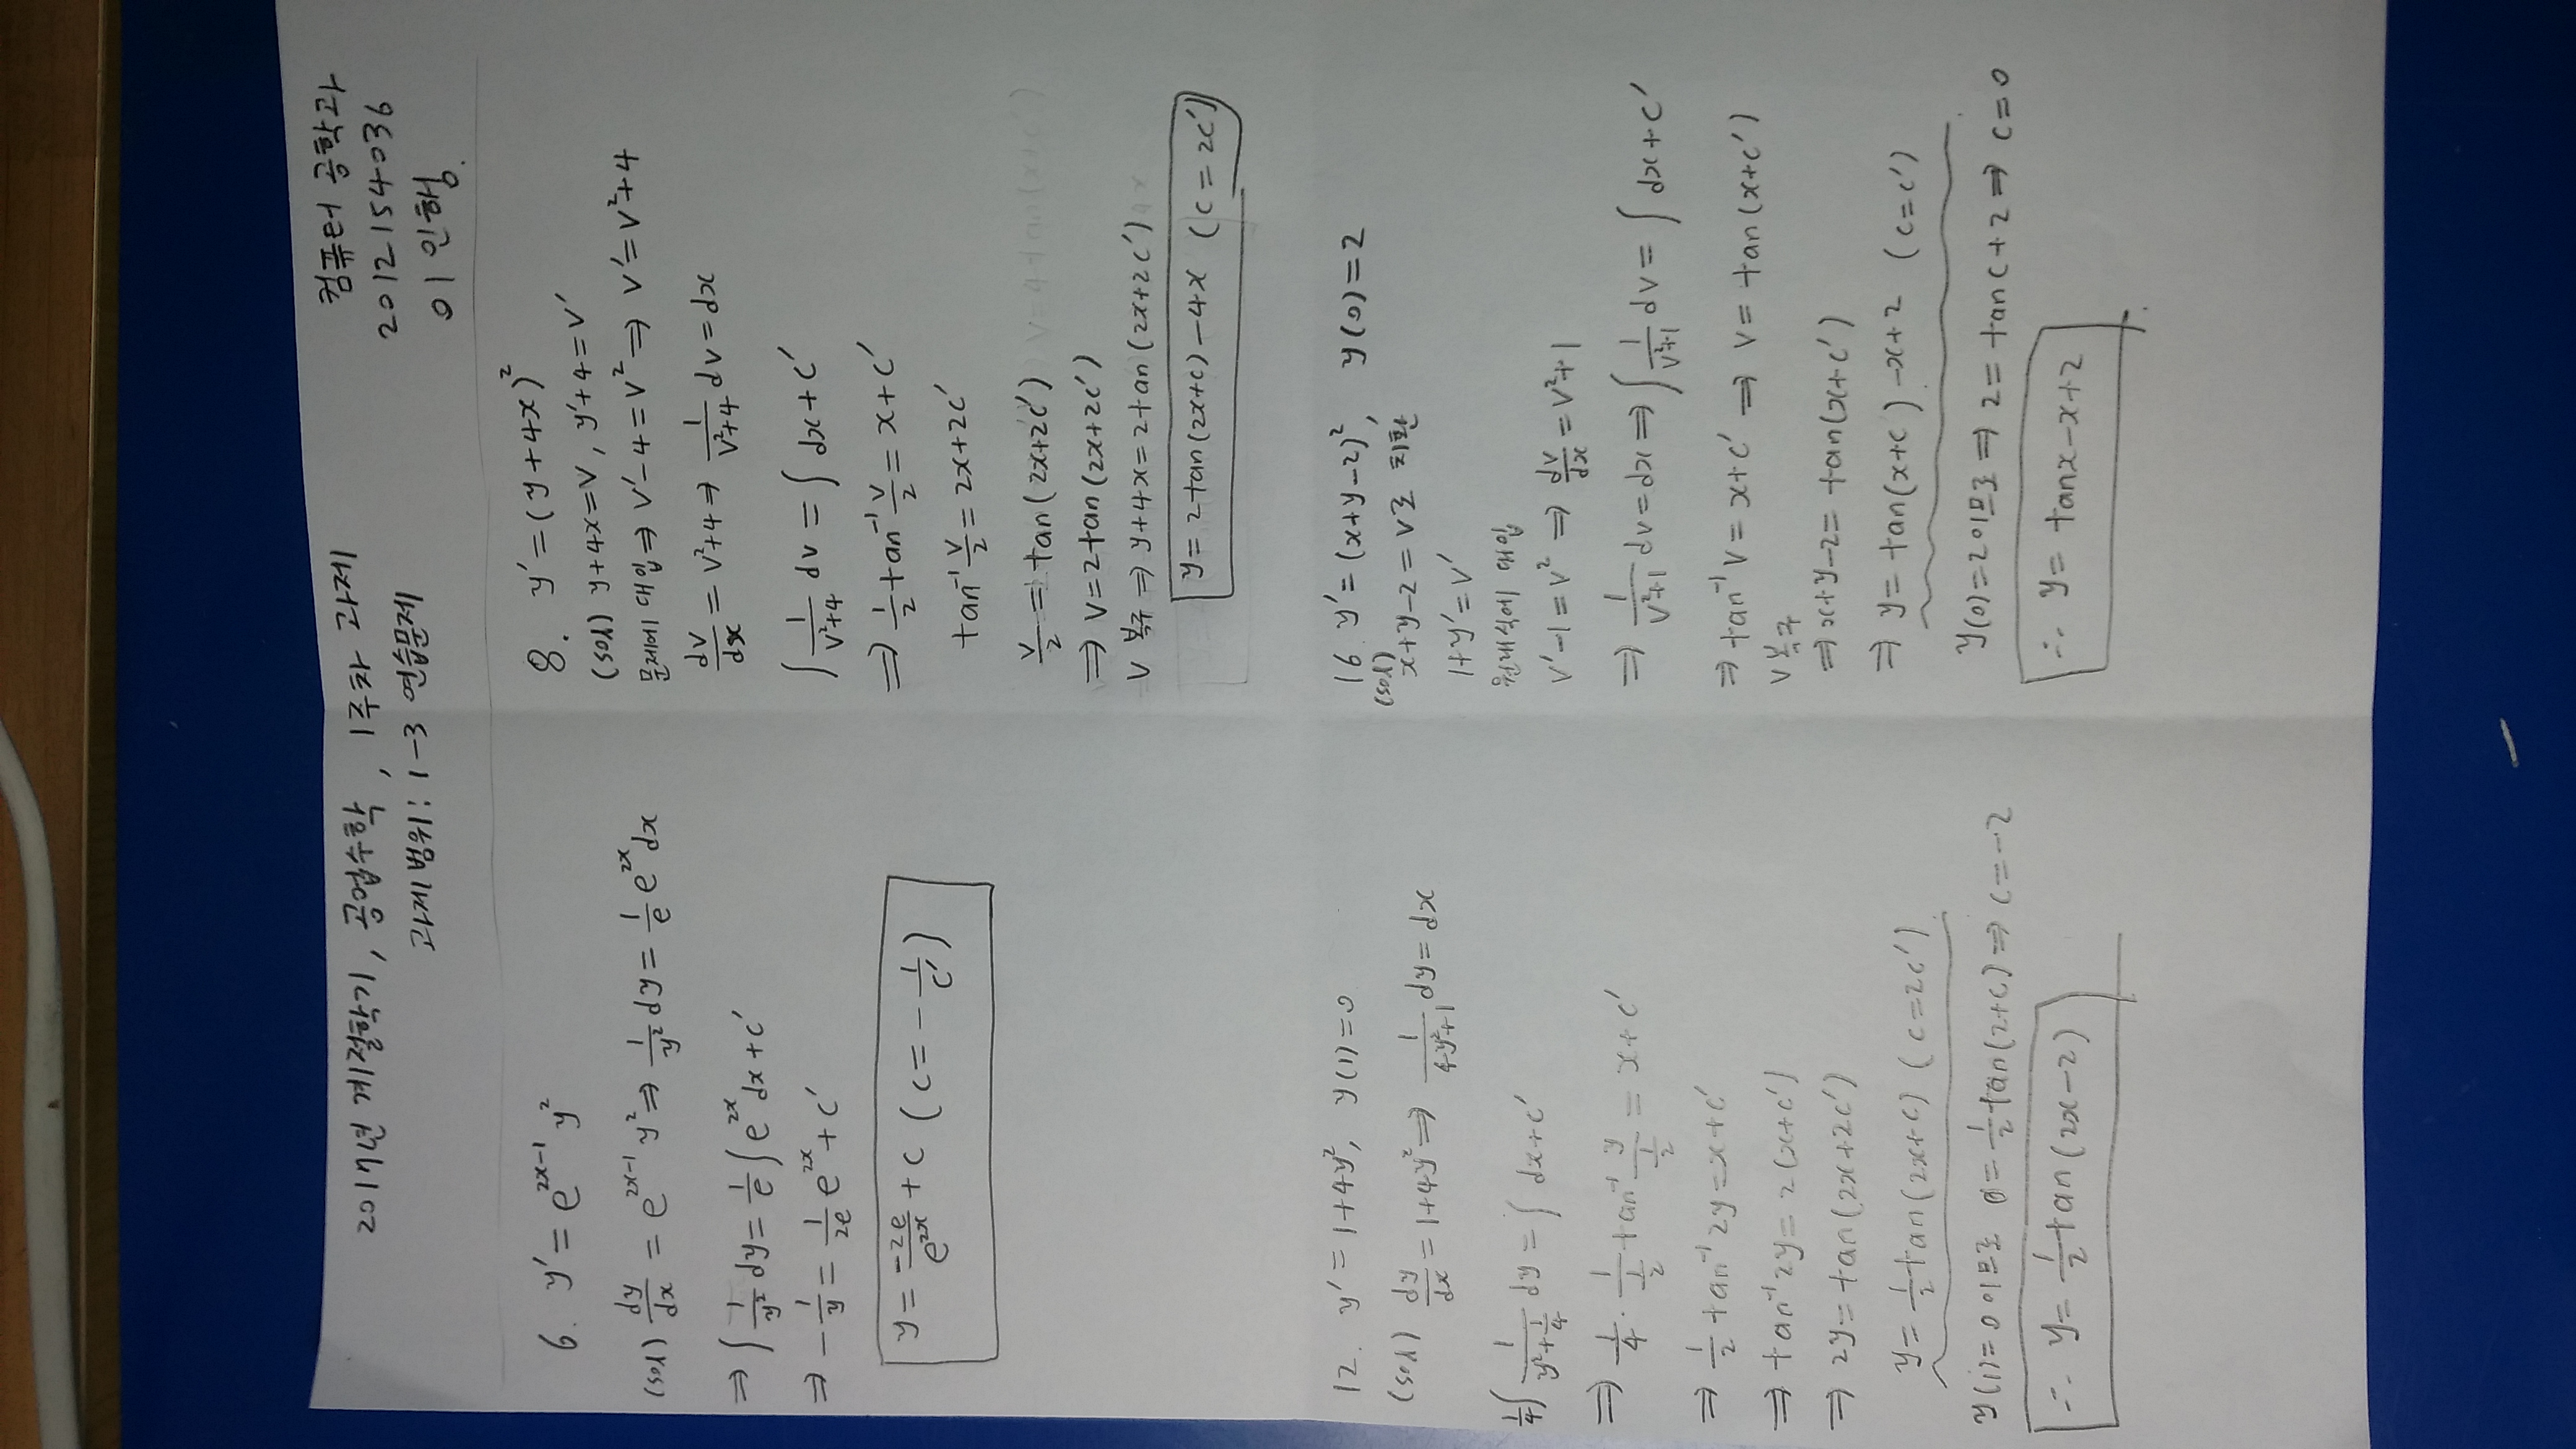 2017년 계절학기, 공업수학, 1주차 과제
과제범위: 1-3 연습문제
컴퓨터 공학과
2012154036
이인행.
6. y′ = e^(2x-1) y²
(sol) dy/dx = e^(2x-1) y² ⇒ 1/y² dy = 1/e e^(2x) dx
⇒ ∫ 1/y² dy = 1/e ∫ e^(2x) dx + c′
⇒ -1/y = 1/2e e^(2x) + c′
y = -2e/e^(2x) + c (c = -1/c′)
8. y′ = (y+4x)²
(sol) y+4x=v, y′+4=v′
문제에 대입 ⇒ v′-4=v² ⇒ v′=v²+4
dv/dx = v²+4 ⇒ 1/(v²+4) dv = dx
∫ 1/(v²+4) dv = ∫ dx + c′
⇒ 1/2 tan⁻¹ v/2 = x + c′
tan⁻¹ v/2 = 2x+2c′
v/2 = tan(2x+2c′)
⇒ v=2tan(2x+2c′)
v 복구 ⇒ y+4x=2tan(2x+2c′)
y = 2tan(2x+c) -4x (c = 2c′)
12. y′ = 1+4y², y(1)=0
(sol) dy/dx = 1+4y² ⇒ 1/(4y²+1) dy = dx
1/4 ∫ 1/(y²+1/4) dy = ∫ dx + c′
⇒ 1/4 · 1/(1/2) tan⁻¹ y/(1/2) = x + c′
⇒ 1/2 tan⁻¹ 2y = x + c′
⇒ tan⁻¹ 2y = 2(x+c′)
⇒ 2y = tan(2x+2c′)
y = 1/2 tan(2x+c) (c=2c′)
y(1)=0이므로 0 = 1/2 tan(2+c) ⇒ c=-2
∴ y = 1/2 tan(2x-2)
16. y′ = (x+y-2)², y(0)=2
(sol)
x+y-2 = v로 치환
1+y′=v′
원래식에 대입
v′-1=v² ⇒ dv/dx = v²+1
⇒ 1/(v²+1) dv = dx ⇒ ∫ 1/(v²+1) dv = ∫ dx + c′
⇒ tan⁻¹ v = x+c′ ⇒ v = tan(x+c′)
v 복구
⇒ x+y-2 = tan(x+c′)
⇒ y = tan(x+c) -x+2 (c=c′)
y(0)=2이므로 ⇒ 2 = tan c + 2 ⇒ c=0
∴ y = tanx-x+2